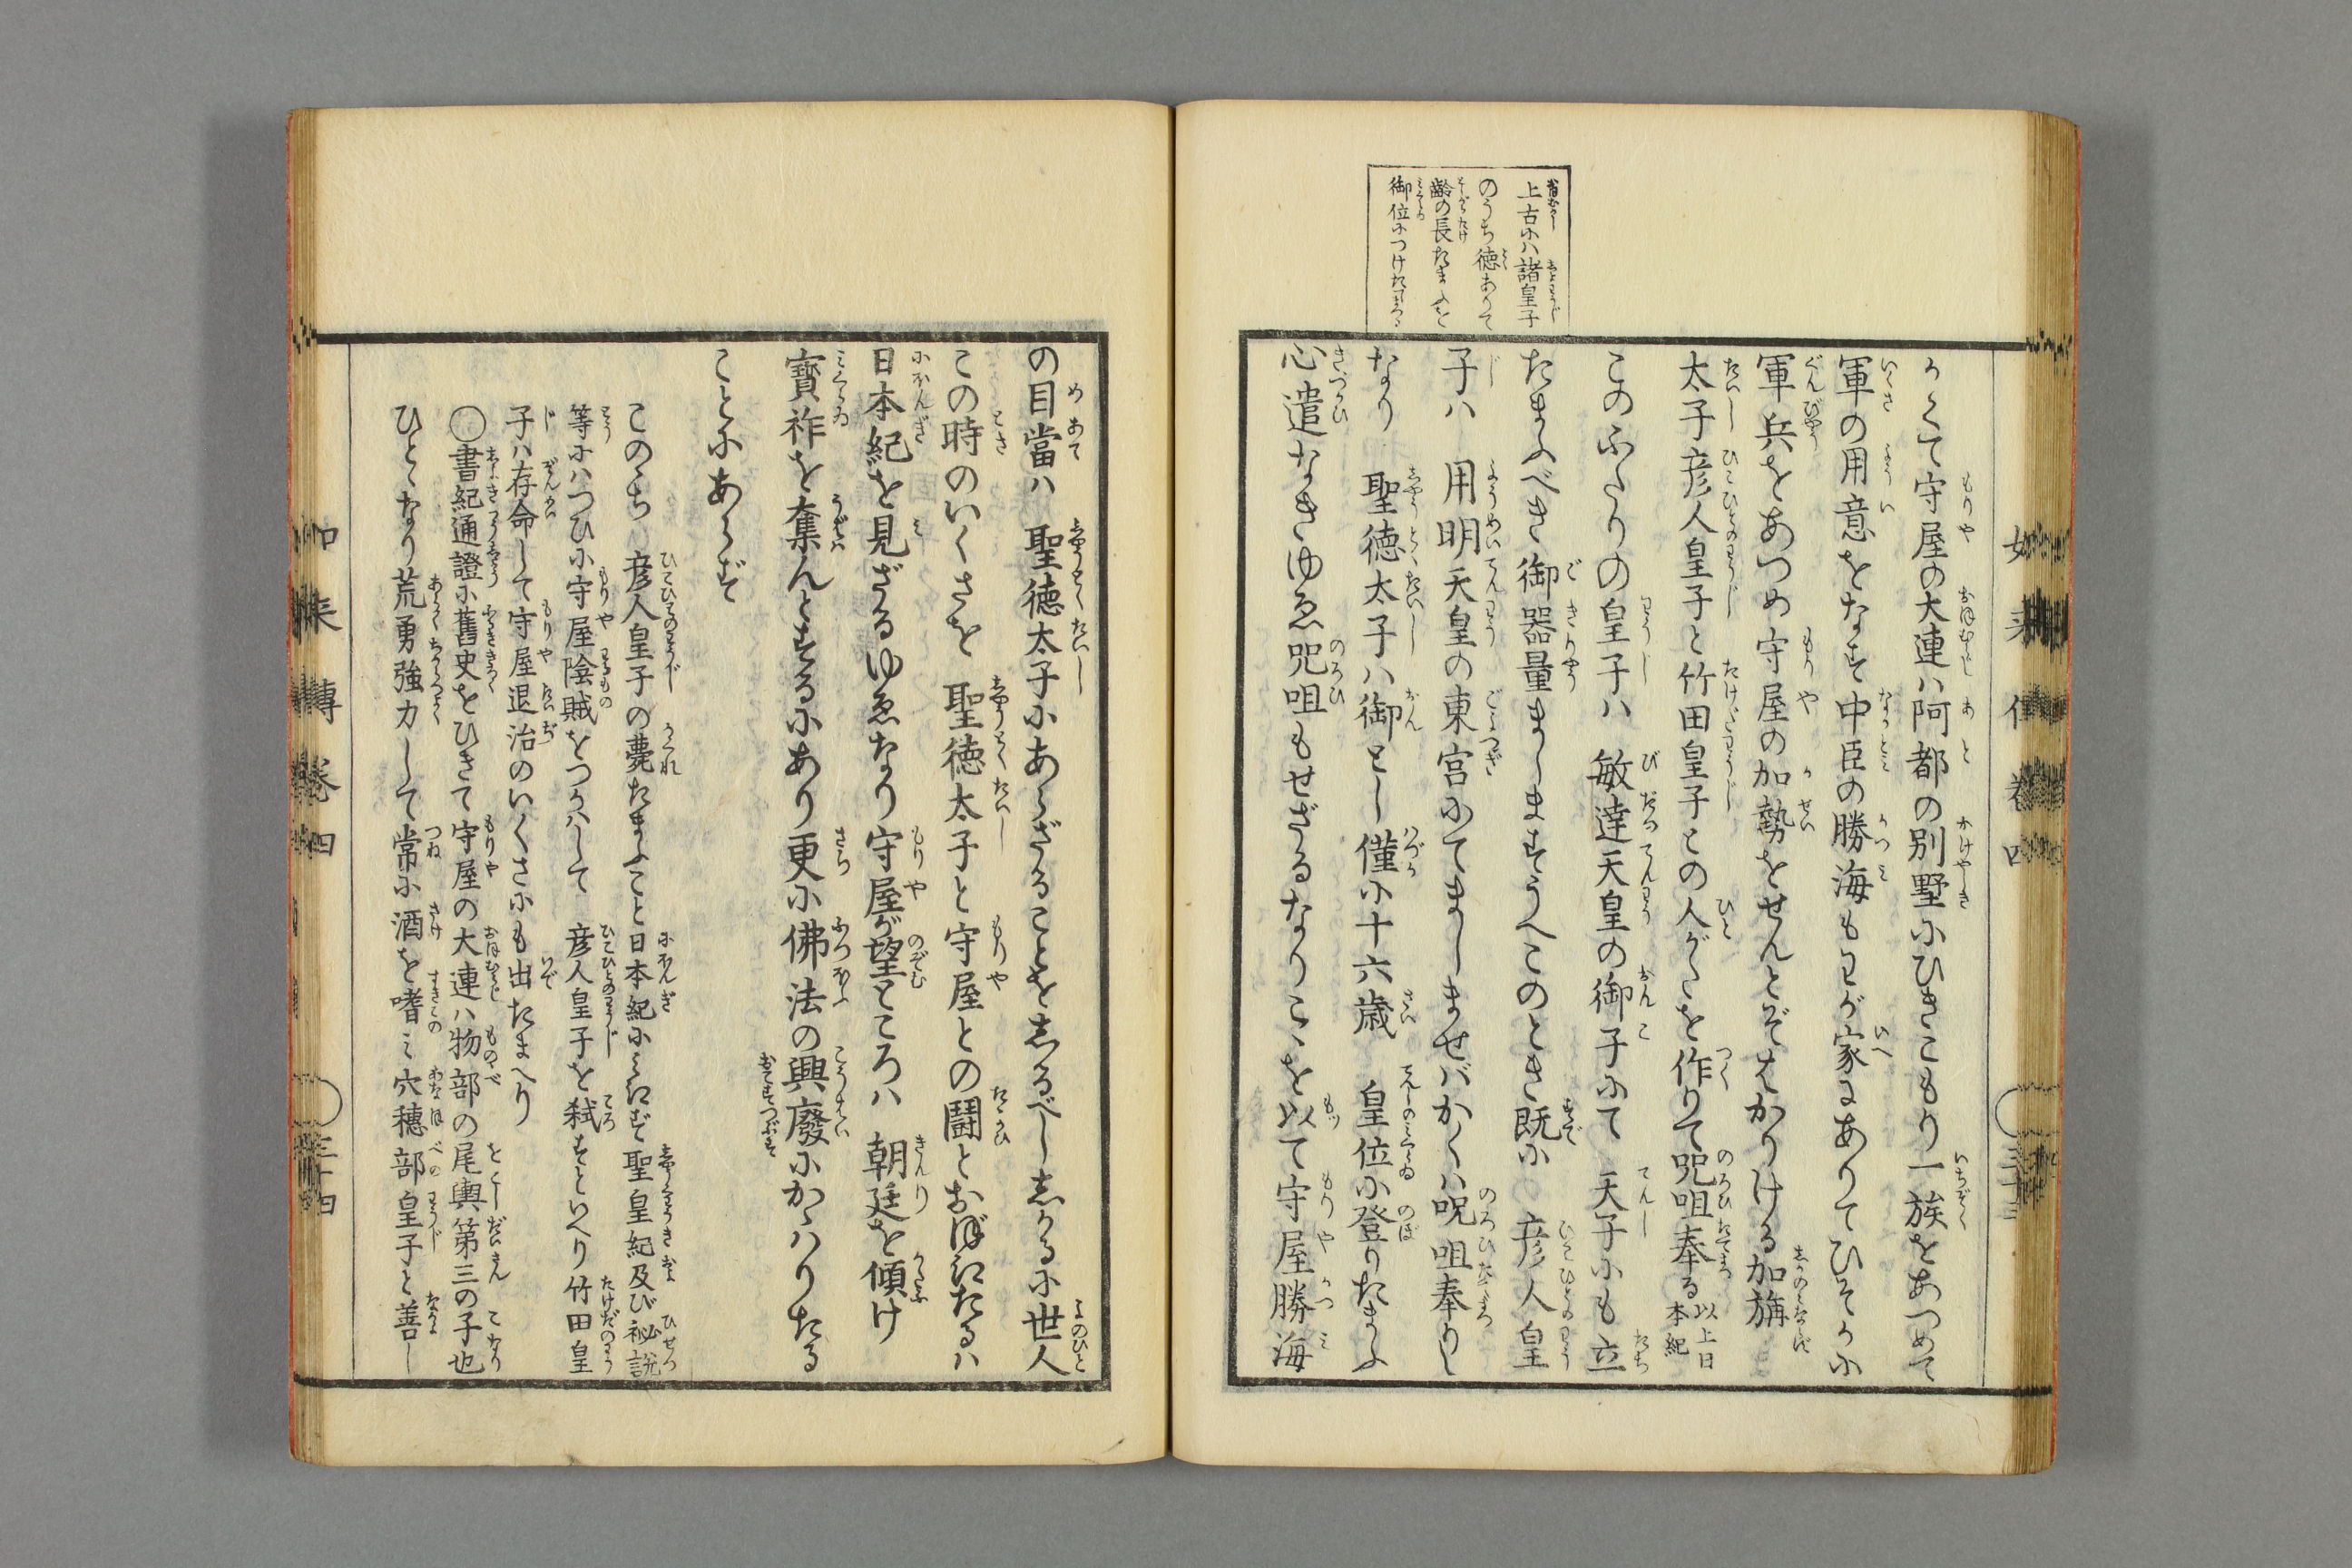 かくて守屋の大連ハ阿都の別墅にひきこもり一族をあつめて
軍の用意をなす中臣の勝海もわが家にありてひそかに
軍兵をあつめ守屋の加勢をせんとぞはかりける加旃
太子彦人皇子と竹田皇子との人がたを作りて咒咀奉る以上日本紀
このふたりの皇子ハ　敏達天皇の御子にて　天子にも立
たまふべき御器量ましますうへこのとき既に　彦人皇
子ハ　用明天皇の東宮にてましませバかくハ呪咀奉りし
なり　聖徳太子ハ御とし僅に十六歳　皇位に登りたまふ
心遣なきゆゑ咒咀もせざるなりこゝを以て守屋勝海
上古にハ諸皇子
のうち徳ありて
齢の長たまふを
御位につけたてまつる
如来傳巻四
三十三
の目當ハ　聖徳太子にあらざることを志るべし志かるに世人
この時のいくさを　聖徳太子と守屋との鬪とおぼえたるハ
日本紀を見ざるゆゑなり守屋が望ところハ　朝廷を傾け
寶祚を奪んとするにあり更に佛法の興廢にかゝハりたる
ことにあらず
このゝち　彦人皇子の薨たまふこと日本紀にみえず聖皇紀及び祕説
等にハつひに守屋陰賊をつかハして　彦人皇子を弑すといへり竹田皇
子ハ存命して守屋退治のいくさにも出たまへり
○書紀通證に舊史をひきて守屋の大連ハ物部の尾輿第三の子也
ひとゝなり荒勇強力して常に酒を嗜み穴穗部皇子と善し
如来傳巻四
三十四